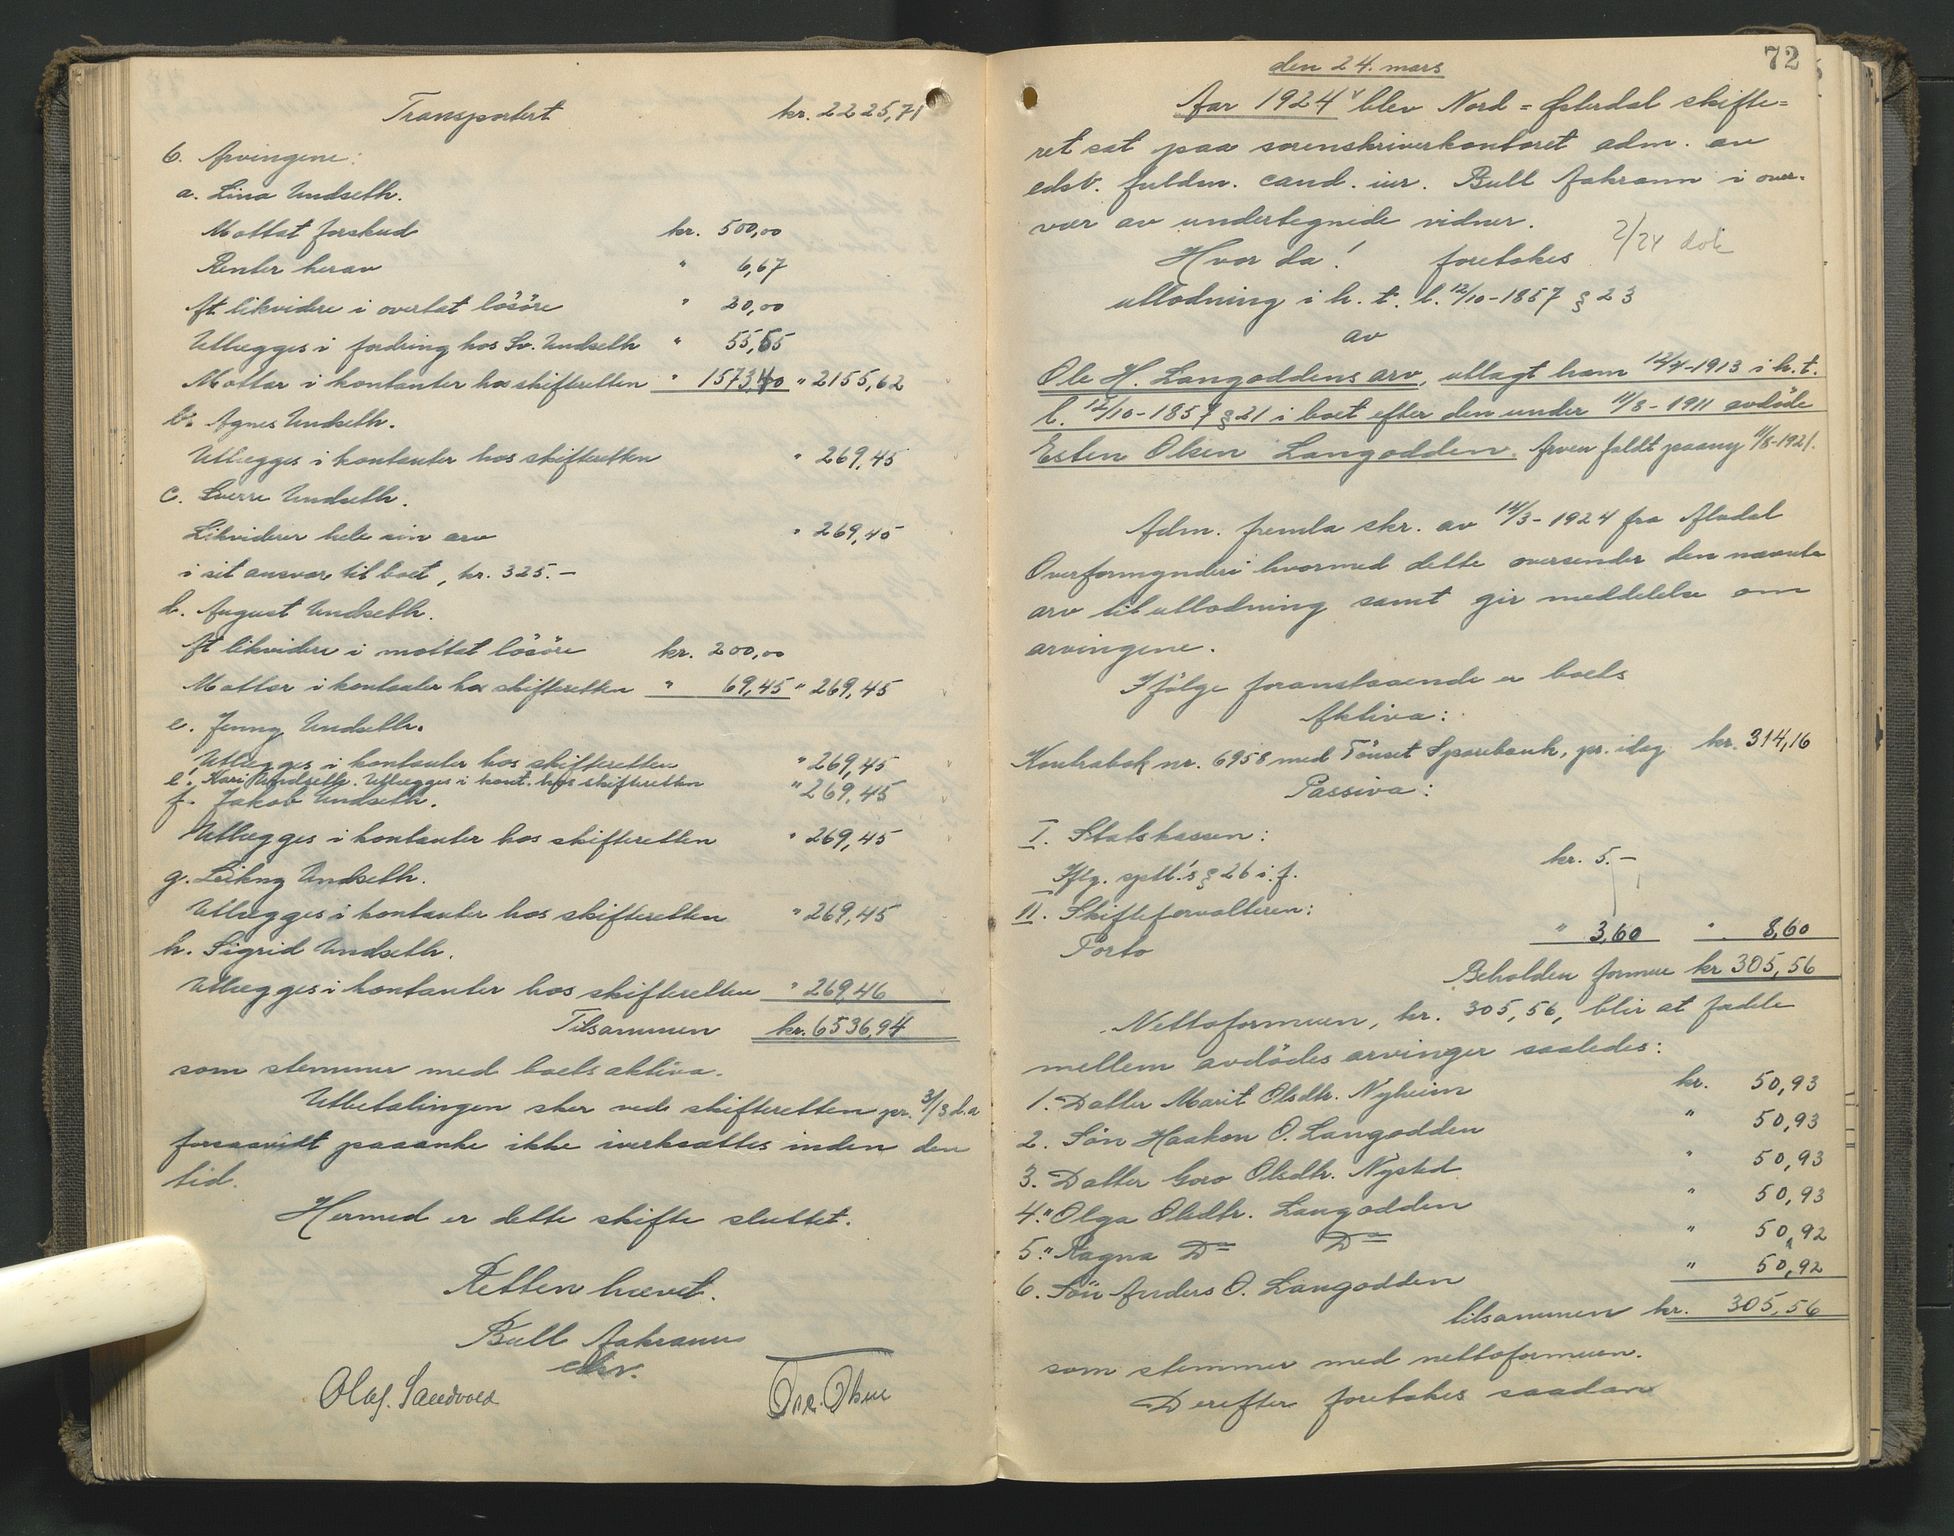 Transportert kr. 2225,71
6. Arvingene:
a. Lina Undseth.
Mottat forskud kr. 500,00
Renter herav " 6,67
At likvidere i overtat lösöre " 20,00
Utlægges i fordring hos Sv. Undseth " 55,55
Mottar i kontanter hos skifteretten " 1573,40 " 2155,62
b. Agnes Undseth.
Utlægges i kontanter hos skifteretten " 269,45
c. Sverre Undseth.
Likviderer hele sin arv " 269,45
i sit ansvar til boet, kr. 325.-
d. August Undseth.
At likvidere i mottat lösöre kr. 200,00
Mottar i kontanter hos skifteretten " 69,45 " 269,45
e. Jenny Undseth.
Utlægges i kontanter hos skifteretten " 269,45
e. Kari Undseth. Utlægges i kont. hos skifteretten " 269,45
f. Jakob Undseth.
Utlægges i kontanter hos skifteretten " 269,45
g. Leikny Undseth.
Utlægges i kontanter hos skifteretten " 269,45
h. Sigrid Undseth.
Utlægges i kontanter hos skifteretten " 269,46
Tilsammen kr. 6536,94
som stemmer med boets aktiva.
Utbetalingen sker ved skifteretten pr. 31/3 d.a
forsaavidt paaanke ikke iverksættes inden den
tid.
Hermed er dette skifte sluttet.
Retten hævet.
Bull Aakrann
edsv.
Olaf. Sandvold Ole. Olsen
72
den 24. mars
Aar 1924 v blev Nord=Østerdal skifte=
ret sat paa sorenskriverkontoret adm. av
edsv. fuldm. cand. iur. Bull Aakrann i over-
vær av undertegnede vidner.
2/24 dok
Hvor da! foretokes
utlodning i h. t. l. 12/10-1857 § 23
av
Ole H. Langoddens arv, utlagt ham 12/4-1913 i h. t.
l. 12/10-1857 § 21 i boet efter den under 11/8-1911 avdöde
Esten Olsen Langodden. Arven faldt paany 11/8-1921.
Adm. fremla skr. av 14/3-1924 fra Alvdal
Overformynderi hvormed dette oversender den nævnte
arv til utlodning samt gir meddelelse om
arvingene.
Ifölge foranstaaende er boets
Aktiva:
Kontrabok nr. 6958 med Tönset Sparebank, pr. idag kr. 314,16
Passiva:
I. Statskassen:
Iflg. sptl.'s § 26 i. f. kr. 5.-
II. Skifteforvalteren:
Porto " 3,60 " 8,60
Beholden formue kr 305,56
Nettoformuen, kr. 305,56, blir at fordele
mellem avdödes arvinger saaledes:
1. Datter Marit Olsdtr. Nyheim kr. 50,93
2. Sön Haakon O. Langodden " 50,93
3. Datter Goro Olsdtr. Nysted " 50,93
4. " Olga Olsdtr. Langodden " 50,93
5. " Ragna Do Do " 50,92
6. Sön Anders O. Langodden " 50,92
tilsammen kr. 305,56
som stemmer med nettoformuen.
Derefter foretokes saadan